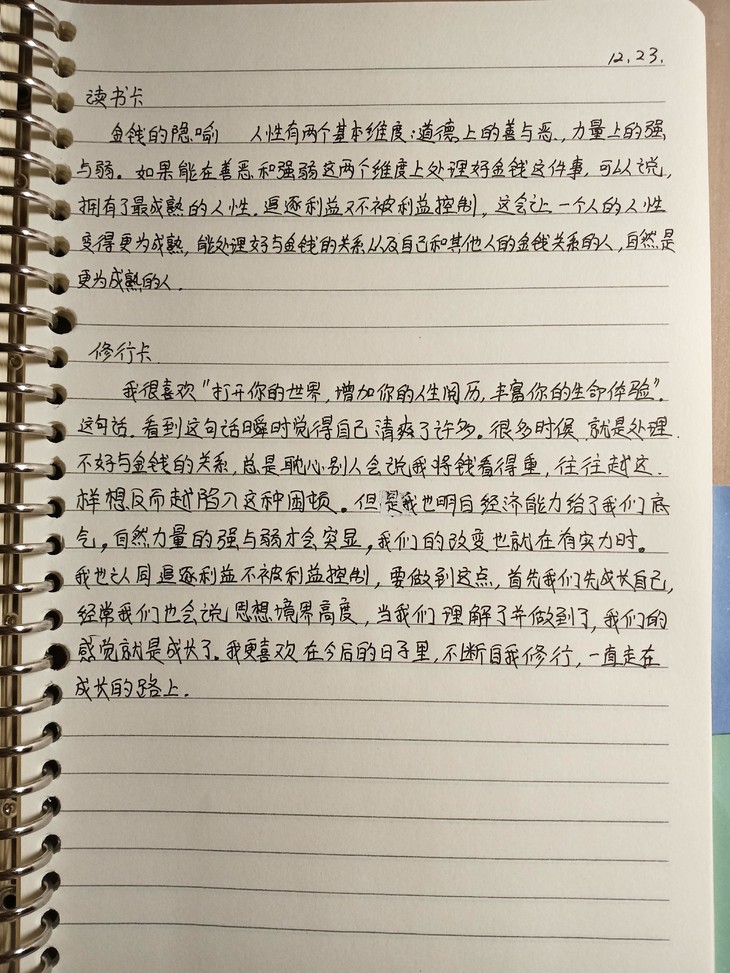 12.23.
读书卡
金钱的隐喻 人性有两个基本维度:道德上的善与恶,力量上的强
与弱。如果能在善恶和强弱这两个维度上处理好金钱这件事,可以说,
拥有了最成熟的人性.追逐利益又不被利益控制,这会让一个人的人性
变得更为成熟,能处理好与金钱的关系以及自己和其他人的金钱关系的人,自然是
更为成熟的人.
修行卡
我很喜欢“打开你的世界,增加你的人生阅历,丰富你的生命体验”.
这句话.看到这句话瞬时觉得自己清爽了许多。很多时候,就是处理
不好与金钱的关系,总是耽心别人会说我将钱看得重,往往越这
样想反而越陷入这种困顿。但是我也明白经济能力给了我们底
气,自然力量的强与弱才会突显,我们的改变也就在有实力时。
我也认同追逐利益不被利益控制,要做到这点,首先我们先成长自己,
经常我们也会说思想境界高度,当我们理解了并做到了,我们的
感觉就是成长了。我更喜欢在今后的日子里,不断自我修行,一直走在
成长的路上.